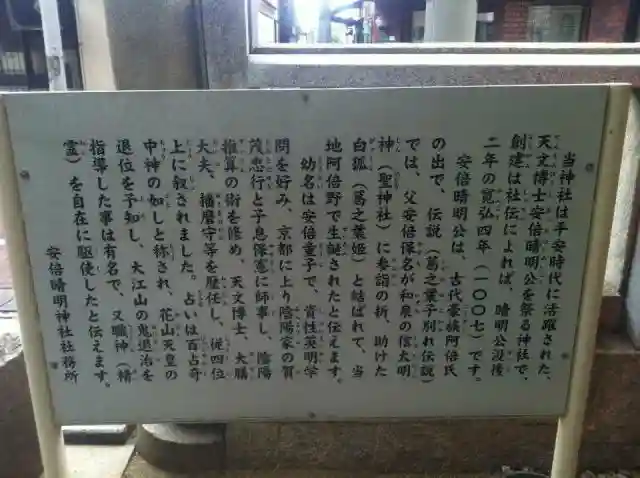 当神社は平安時代に活躍された、
天文博士安倍晴明公を祭る神社で、
創建は社伝によれば、晴明公没後
二年の寛弘四年（一〇〇七）です。
安倍晴明公は、古代豪族阿倍氏
の出で、伝説（葛之葉子別れ伝説）
では、父安倍保名が和泉の信太明
神（聖神社）に参詣の折、助けた
白狐（葛之葉姫）と結ばれて、当
地阿倍野で生誕されたと伝えます。
幼名は安倍童子で、資性英明学
問を好み、京都に上り陰陽家の賀
茂忠行と子息保憲に師事し、陰陽
推算の術を修め、天文博士、大膳
大夫、播磨守等を歴任し、従四位
上に叙されました。占いは百占奇
中神の如しと称され、花山天皇の
退位を予知し、大江山の鬼退治を
指導した事は有名で、又職神（精
霊）を自在に駆使したと伝えます。
安倍晴明神社社務所